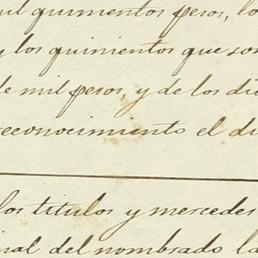 mil quinientos pesos, lo
y los quinientos que son
de mil pesos, y de los di
reconocimiento el di
los titulos y mercedes
nal del nombrado la